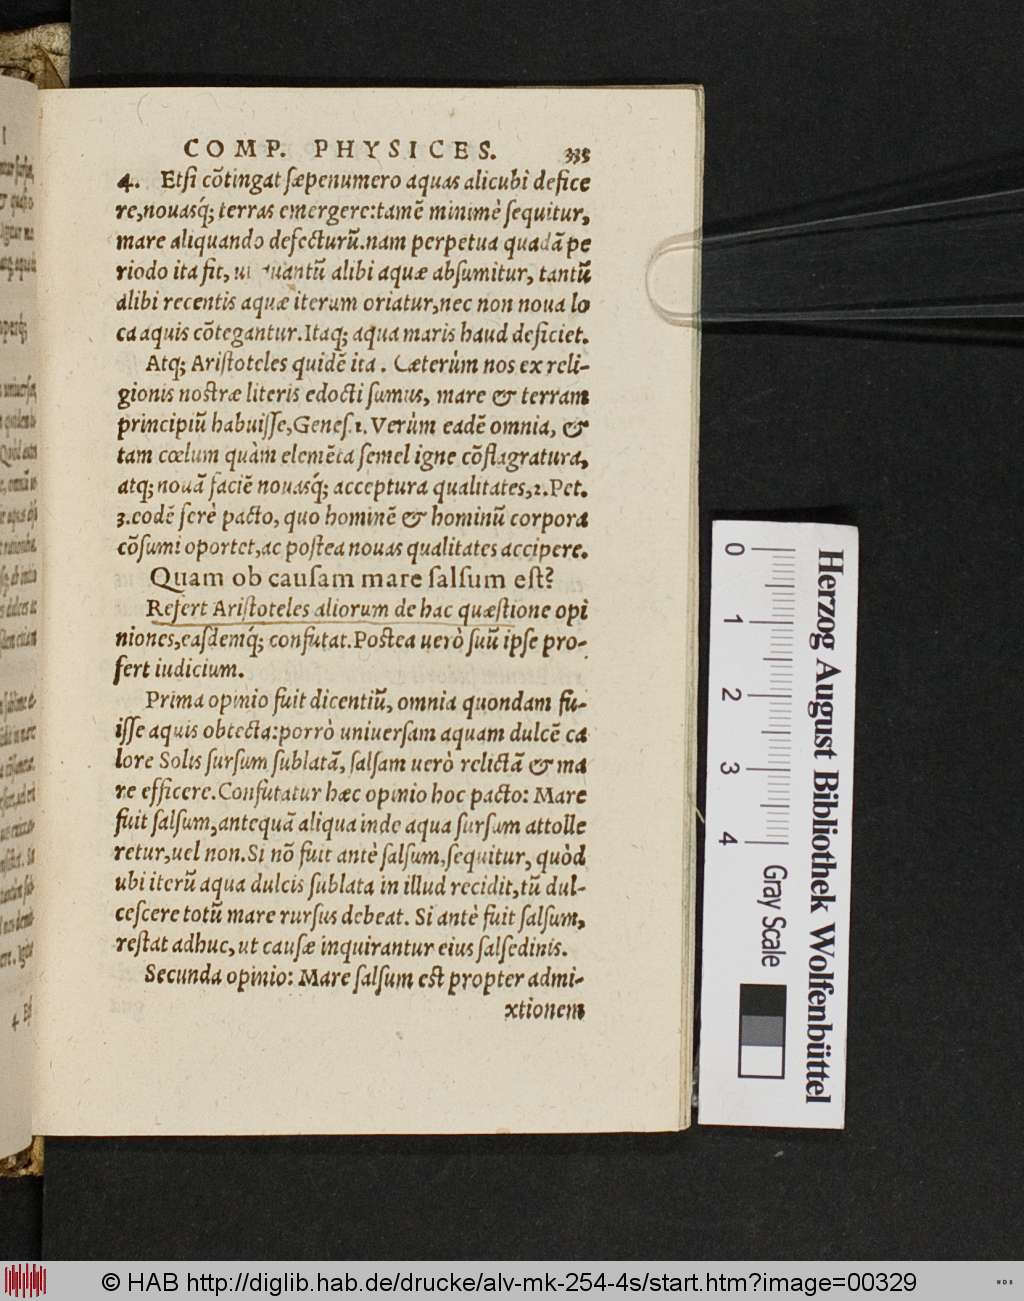 COMP. PHYSICES. 335
4. Etſi cõtingat ſæpenumero aquas alicubi defice
re,nouasq́; terras emergere:tamẽ minimè ſequitur,
mare aliquando defecturũ.nam perpetua quadã pe
riodo ita fit, ut quantũ alibi aquæ abſumitur, tantũ
alibi recentis aquæ iterum oriatur,nec non noua lo
ca aquis cõtegantur.Itaq; aqua maris haud deficiet.
Atq; Ariſtoteles quidẽ ita. Cæterùm nos ex reli-
gionis noſtræ literis edocti ſumus, mare & terram
principiũ habuiſſe,Geneſ.1. Verùm eadẽ omnia, &
tam cœlum quàm elemẽta ſemel igne cõflagratura,
atq; nouã faciẽ nouasq́; acceptura qualitates,2.Pet.
3.eodẽ ferè pacto, quo hominẽ & hominũ corpora
cõſumi oportet,ac poſtea nouas qualitates accipere.
Quam ob cauſam mare ſalſum eſt?
Refert Ariſtoteles aliorum de hac quæſtione opi
niones,eaſdemq́; confutat.Poſtea uerò ſuũ ipſe pro-
fert iudicium.
Prima opinio fuit dicentiũ, omnia quondam fu-
iſſe aquis obtecta:porrò uniuerſam aquam dulcẽ ca
lore Solis ſurſum ſublatã, ſalſam uerò relictã & ma
re efficere.Confutatur hæc opinio hoc pacto: Mare
fuit ſalſum,antequã aliqua inde aqua ſurſum attolle
retur,uel non.Si nõ fuit antè ſalſum,ſequitur, quòd
ubi iterũ aqua dulcis ſublata in illud recidit,tũ dul-
ceſcere totũ mare rurſus debeat. Si antè fuit ſalſum,
reſtat adhuc,ut cauſæ inquirantur eius ſalſedinis.
Secunda opinio: Mare ſalſum eſt propter admi-
xtionem
0 1 2 3 4 Gray Scale
Herzog August Bibliothek Wolfenbüttel
© HAB http://diglib.hab.de/drucke/alv-mk-254-4s/start.htm?image=00329